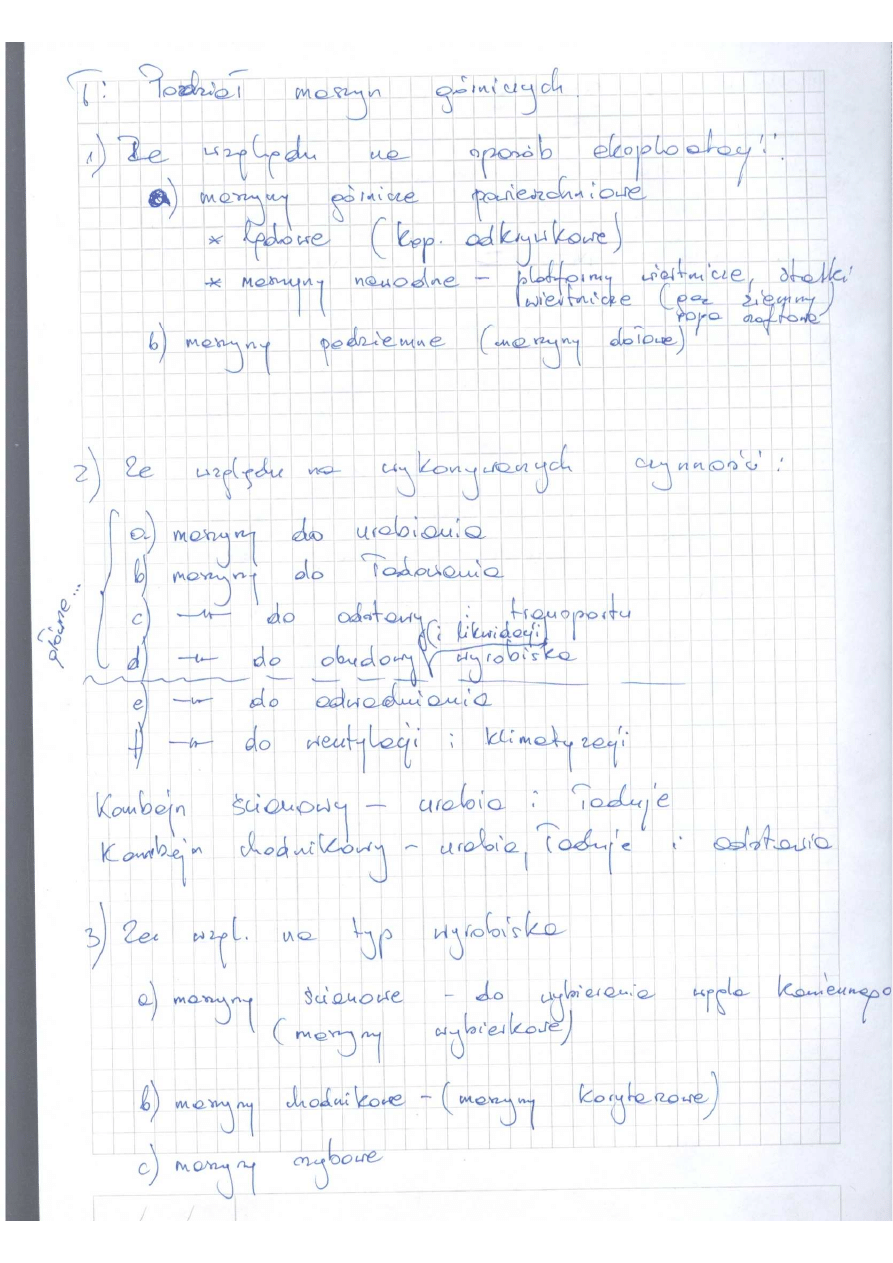 T: Podział maszyn górniczych
1) Ze względu na sposób eksploatacji:
a) maszyny górnicze powierzchniowe
* lądowe (kop. odkrywkowe)
* maszyny nawodne – platformy wiertnicze, statki
wiertnicze (gaz ziemny
ropa naftowa)
b) maszyny podziemne (maszyny dołowe)
2) Ze względu na wykonywanych czynności:
główne...
a) maszyny do urabiania
b) maszyny do ładowania
c) –||– do odstawy i transportu
d) –||– do obudowy (i likwidacji) wyrobiska
e) –||– do odwadniania
f) –||– do wentylacji i klimatyzacji
Kombajn ścianowy – urabia i ładuje
Kombajn chodnikowy – urabia, ładuje i odstawia
3) Ze wzgl. na typ wyrobiska
a) maszyny ścianowe – do wybierania węgla kamiennego
(maszyny wybierkowe)
b) maszyny chodnikowe – (maszyny korytarzowe)
c) maszyny szybowe